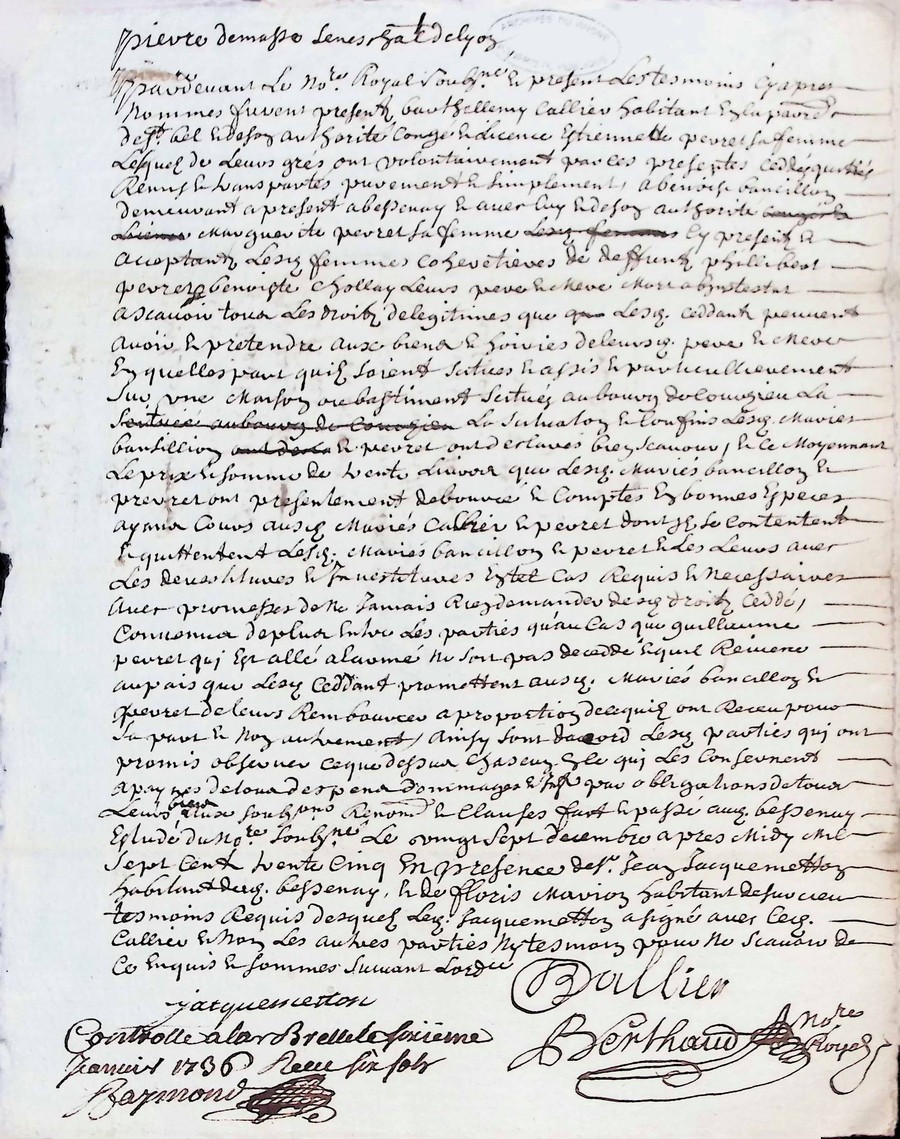 pierre demasso seneschal de lyon
ARCHIVES DU RHONE
pardevant Le No.re Royal soub.né Et present Les tesmoins Cy apres
Nommes furent presentz barthellemy Callier habitant En la parr.e
de st. bel Et de son authorite Congé Et Licence Estiennette peyret sa femme
Lesquelz de Leurs grés ont volontairement par Ces presentes Ceddés quittés
Remis Et transportés purement Et simplement, a benoist bancillon
demeurant a present a bessenay Et avec Luy Et de son authorité
Marguerite peyret sa femme Cy presentz Et
acceptantz Lesq. femmes Coheretieres de deffuntz phillibert
peyret Et benoiste Chollay Leurs pere Et Mere Mort abintestat
ascavoir tous Les droitz de legitimes que Lesq. Ceddants peuvent
avoir Et pretendre aux biens Et hoiries de leursq. pere Et Mere
En quelles part quilz soient scitues Et assis Et particullierement
sur une Maison ou bastiment scitues au bourg de Courzieu La
scituée au bourg de Courzieu La situation Et Confins Lesq. Mariés
bansillion Et peyret ont desclarés bien scavoir, Et Ce Moyennant
Le prix Et somme de trente Livres que Lesq. Mariés bancillon Et
preyret ont presentement debource Et Comptes En bonnes Especes
ayant Cours ausq. Mariés Callier Et peyret dont Ilz se Contentent
Et quittentent Lesq. Mariés bancillon Et peyret Et Les Leurs avec
Les devestitures Et Investitures En tel Cas Requis Et Necessaires
avec promesses de Ne Jamais Rien demander desq. droitz Ceddé,
Convenus de plus Entre Les parties qu'au Cas que guilliaume
peyret qui Est allé a larmé Ne soit pas deceddé Et quil Reviene
au pais que Lesq. Ceddant promettent ausq. Mariés bancillon Et
peyret de leurs Rembourcer a proportion de ce quilz ont Receu pour
sa part Et Non autrement, Ainsy sont dacord Lesq. parties qui ont
promis observer Ce que dessus Chascun En Ce qui Les Conservent
a paynes de tous despens dommages Et Int.s par obligations de tous
Leurs biens soubz.ons Renon.s Et Clauses fait Et passé auq. bessenay
Estude du No.re soub.né Le vingt sept decembre apres Midy Mil
sept Cent trente Cinq En presence de sr. Jean Jacquemetton
habitant dud. bessenay, Et de floris Marion habitant de surcieu
tesmoins Requis desquelz Leq. Jacquemetton a signé avec Leq.
Callier Et Non Les autres parties Ny tesmoin pour Ne scavoir de
Ce Enquis Et sommes suivant Lordce
Jacquemetton
Callier
Controlle a lar Brelle le sixieme
Janvier 1736 Receu six sols
Raymond
Berthaud
nore
Royal